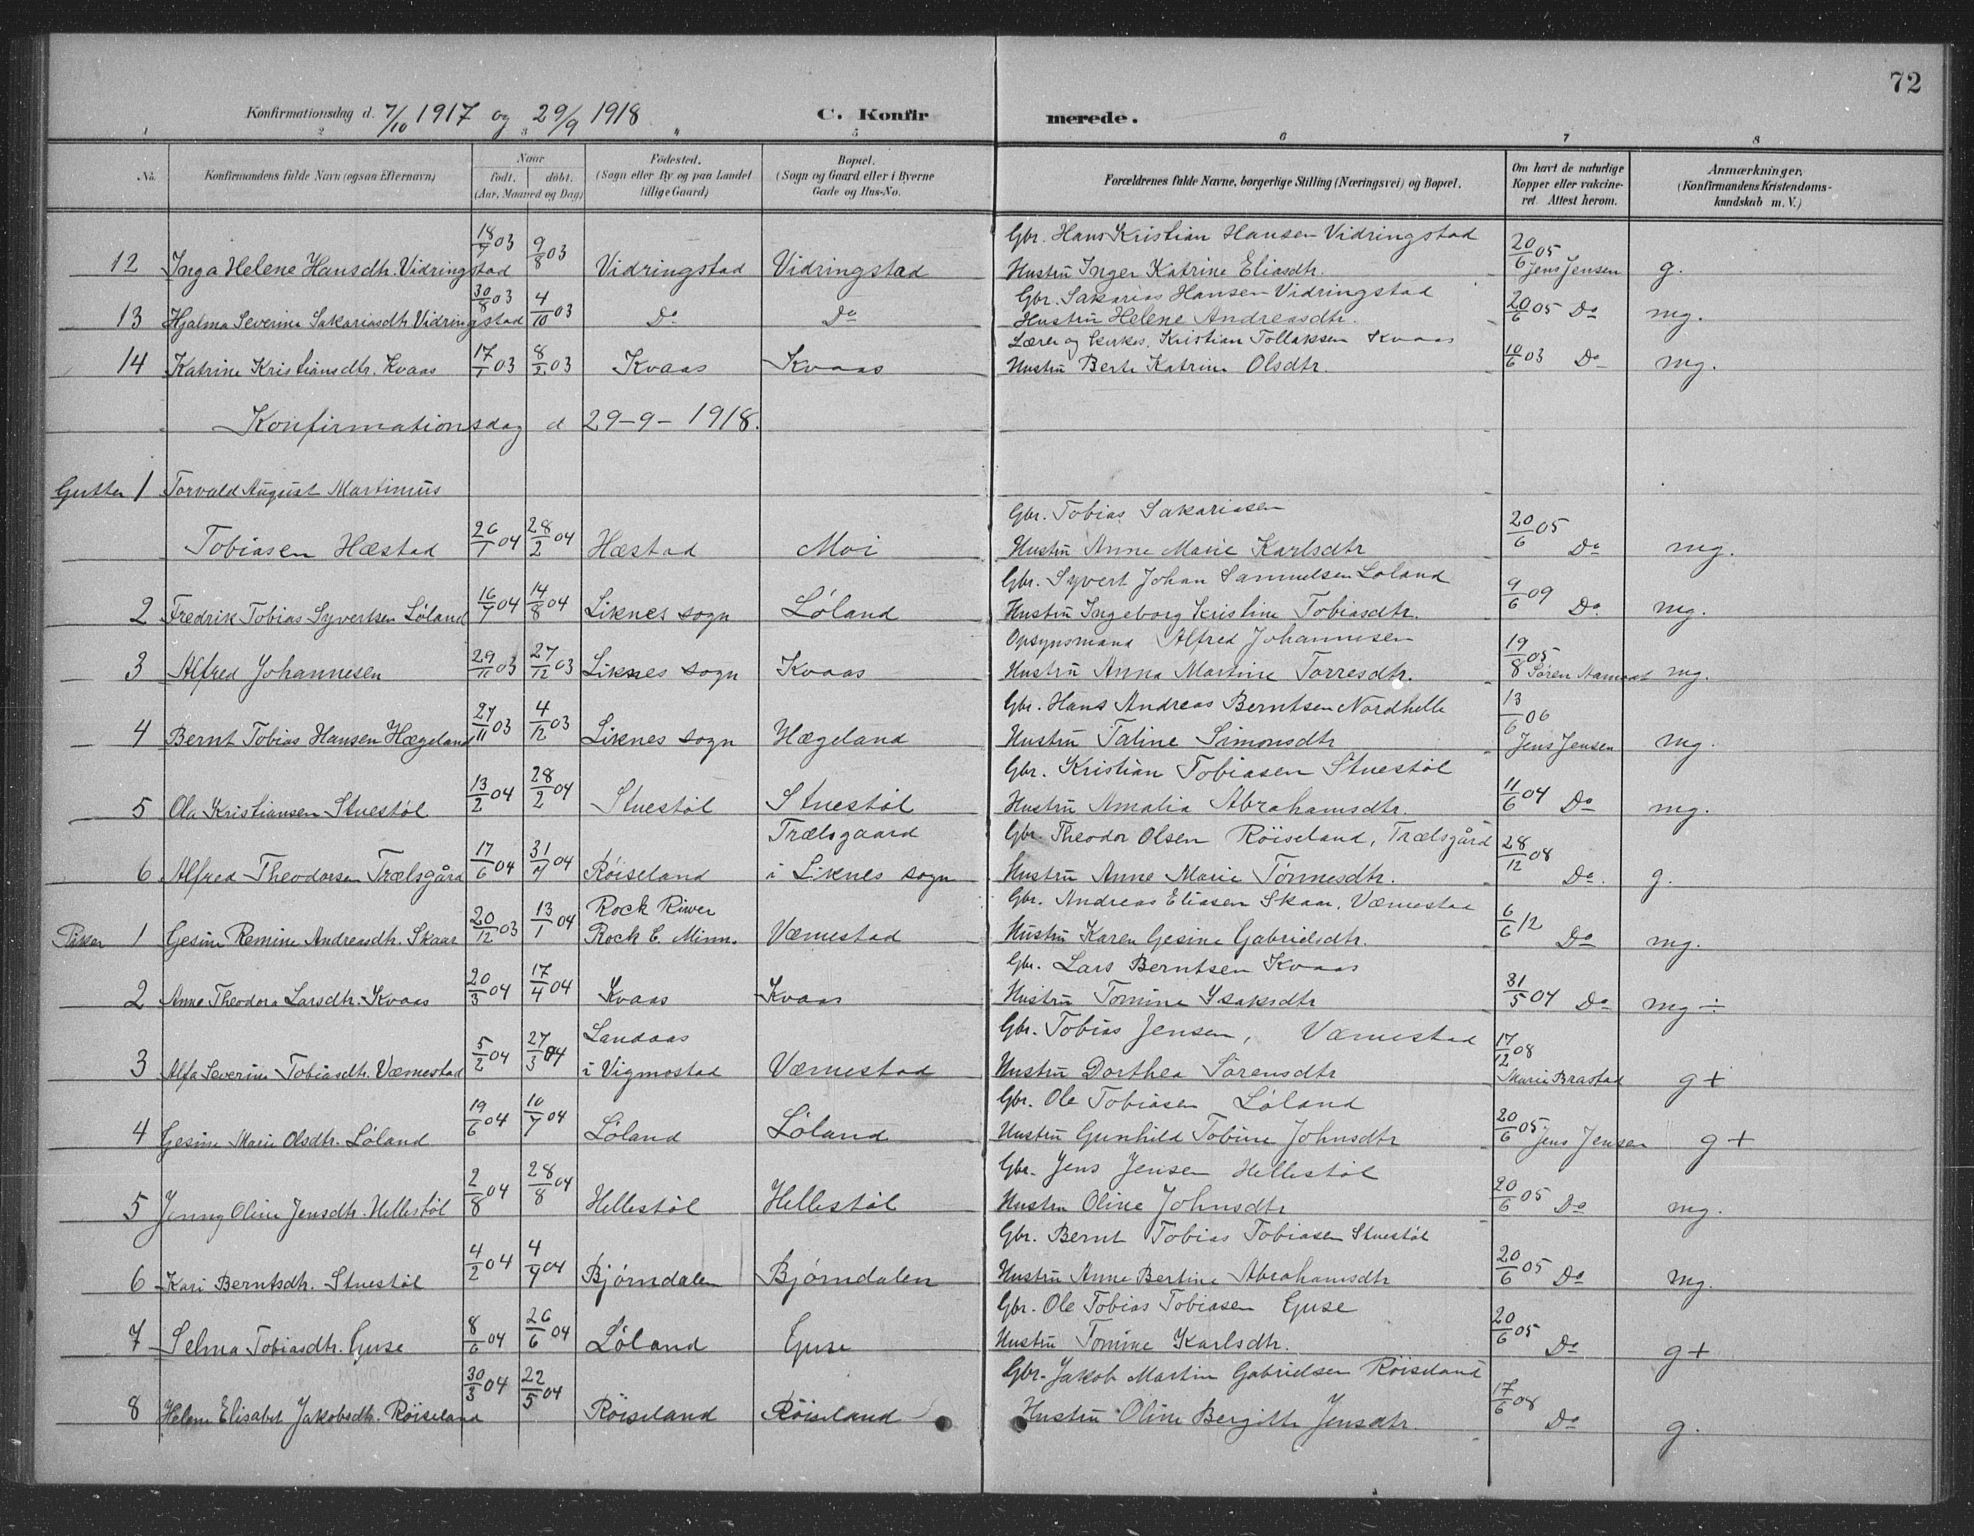 72
Konfirmationsdag d. 7/10 1917 og 29/9 1918 C. Konfirmerede.
1 2 3 4 5 6 7 8
No. Konfirmandens fulde Navn (ogsaa Efternavn) Naar født. døbt. (Aar, Maaned og Dag) Fødested. (Sogn eller By og paa Landet tillige Gaard) Bopæl. (Sogn og Gaard eller i Byerne Gade og Hus-No. Forældrenes fulde Navne, borgerlige Stilling (Næringsvei) og Bopæl. Om havt de naturlige Kopper eller vakcineret. Attest herom. Anmærkninger, (Konfirmandens Kristendomskundskab m. V.)
Gbr. Hans Kristian Hansen Vidringstad
12 Inga Helene Hansdtr. Vidringstad 18/7 03 9/8 03 Vidringstad Vidringstad Hustru Inger Katrine Eliasdtr. 20/6 05 Jens Jensen g.
Gbr. Sakarias Hansen Vidringstad
13 Hjalma Severine Sakariasdtr Vidringstad 30/8 03 4/10 03 Do Do Hustru Helene Andreasdtr. 20/6 05 Do mg.
Lærer og Kirkes. Kristian Tollaksen Kvaas
14 Katrine Kristiansdtr. Kvaas 17/1 03 8/2 03 Kvaas Kvaas Hustru Berte Katrine Olsdtr. 10/6 03 Do mg.
Konfirmationsdag d 29-9-1918.
Gutter 1 Torvald August Martinius
Gbr. Tobias Sakariasen
Tobiasen Hæstad 26/1 04 28/2 04 Hæstad Moi Hustru Anne Marie Karlsdtr 20/6 05 Do mg.
Gbr. Syvert Johan Samuelsen Løland
2 Fredrik Tobias Syvertsen Løland 16/7 04 14/8 04 Liknes sogn Løland Hustru Ingeborg Kristine Tobiasdtr. 9/6 09 Do mg.
Opsynsmand Alfred Johannesen
3 Alfred Johannesen 29/11 03 27/12 03 Liknes sogn Kvaas Hustru Anna Martine Torresdtr. 19/8 05 Søren Aamodt mg.
Gbr. Hans Andreas Berntsen Nordhelle
4 Bernt Tobias Hansen Hægeland 27/11 03 4/12 03 Liknes sogn Hægeland Hustru Taline Simonsdtr 13/6 06 Jens Jensen mg.
Gbr. Kristian Tobiasen Stuestøl
5 Ola Kristiansen Stuestøl 13/2 04 28/2 04 Stuestøl Stuestøl Hustru Amalia Abrahamsdtr. 11/6 04 Do mg.
Trælsgaard Gbr. Theodor Olsen Røiseland, Trælsgård
6 Alfred Theodorsen Trælsgård 17/6 04 31/7 04 Røiseland i Liknes sogn Hustru Anne Marie Tønnesdtr. 28/12 08 Do. g.
Rock River Gbr. Andreas Eliasen Skaar, Væmestad
Piker 1 Gesine Remine Andreasdtr. Skaar 20/12 03 13/1 04 Rock C. Minn. Væmestad Hustru Karen Gesine Gabrielsdtr. 6/6 12 Do mg.
Gbr. Lars Berntsen Kvaas
2 Anne Theodora Larsdtr. Kvaas 20/3 04 17/4 04 Kvaas Kvaas Hustru Tomine Isaksdtr 31/5 04 Do mg ÷
Landaas Gbr. Tobias Jensen, Væmestad
3 Alfa Severine Tobiasdtr. Væmestad 5/2 04 27/3 04 i Vigmostad Væmestad Hustru Dorthea Sørensdtr 17/12 08 Marie Brastad g +
Gbr. Ole Tobiasen Løland
4 Gesine Marie Olsdtr. Løland 19/6 04 10/7 04 Løland Løland Hustru Gunhild Tobine Johnsdtr 20/6 05 Jens Jensen g +
Gbr. Jens Jensen Hellestøl
5 Jenny Oline Jensdtr. Hellestøl 2/8 04 28/8 04 Hellestøl Hellestøl Hustru Oline Johnsdtr 20/6 05 Do mg.
Gbr. Bernt Tobias Tobiasen Stuestøl
6 Kari Berntsdtr. Stuestøl 4/2 04 4/4 04 Bjørndalen Bjørndalen Hustru Anne Bertine Abrahamsdtr 20/6 05 Do mg.
Gbr. Ole Tobias Tobiasen Guse
7 Selma Tobiasdtr. Guse 8/6 04 26/6 04 Løland Guse Hustru Tomine Karlsdtr. 20/6 05 Do g +
Gbr. Jakob Martin Gabrielsen Røiseland
8 Helene Elisabet Jakobsdtr. Røiseland 30/3 04 22/5 04 Røiseland Røiseland Hustru Oline Bergitte Jensdtr. 17/6 08 Do g.